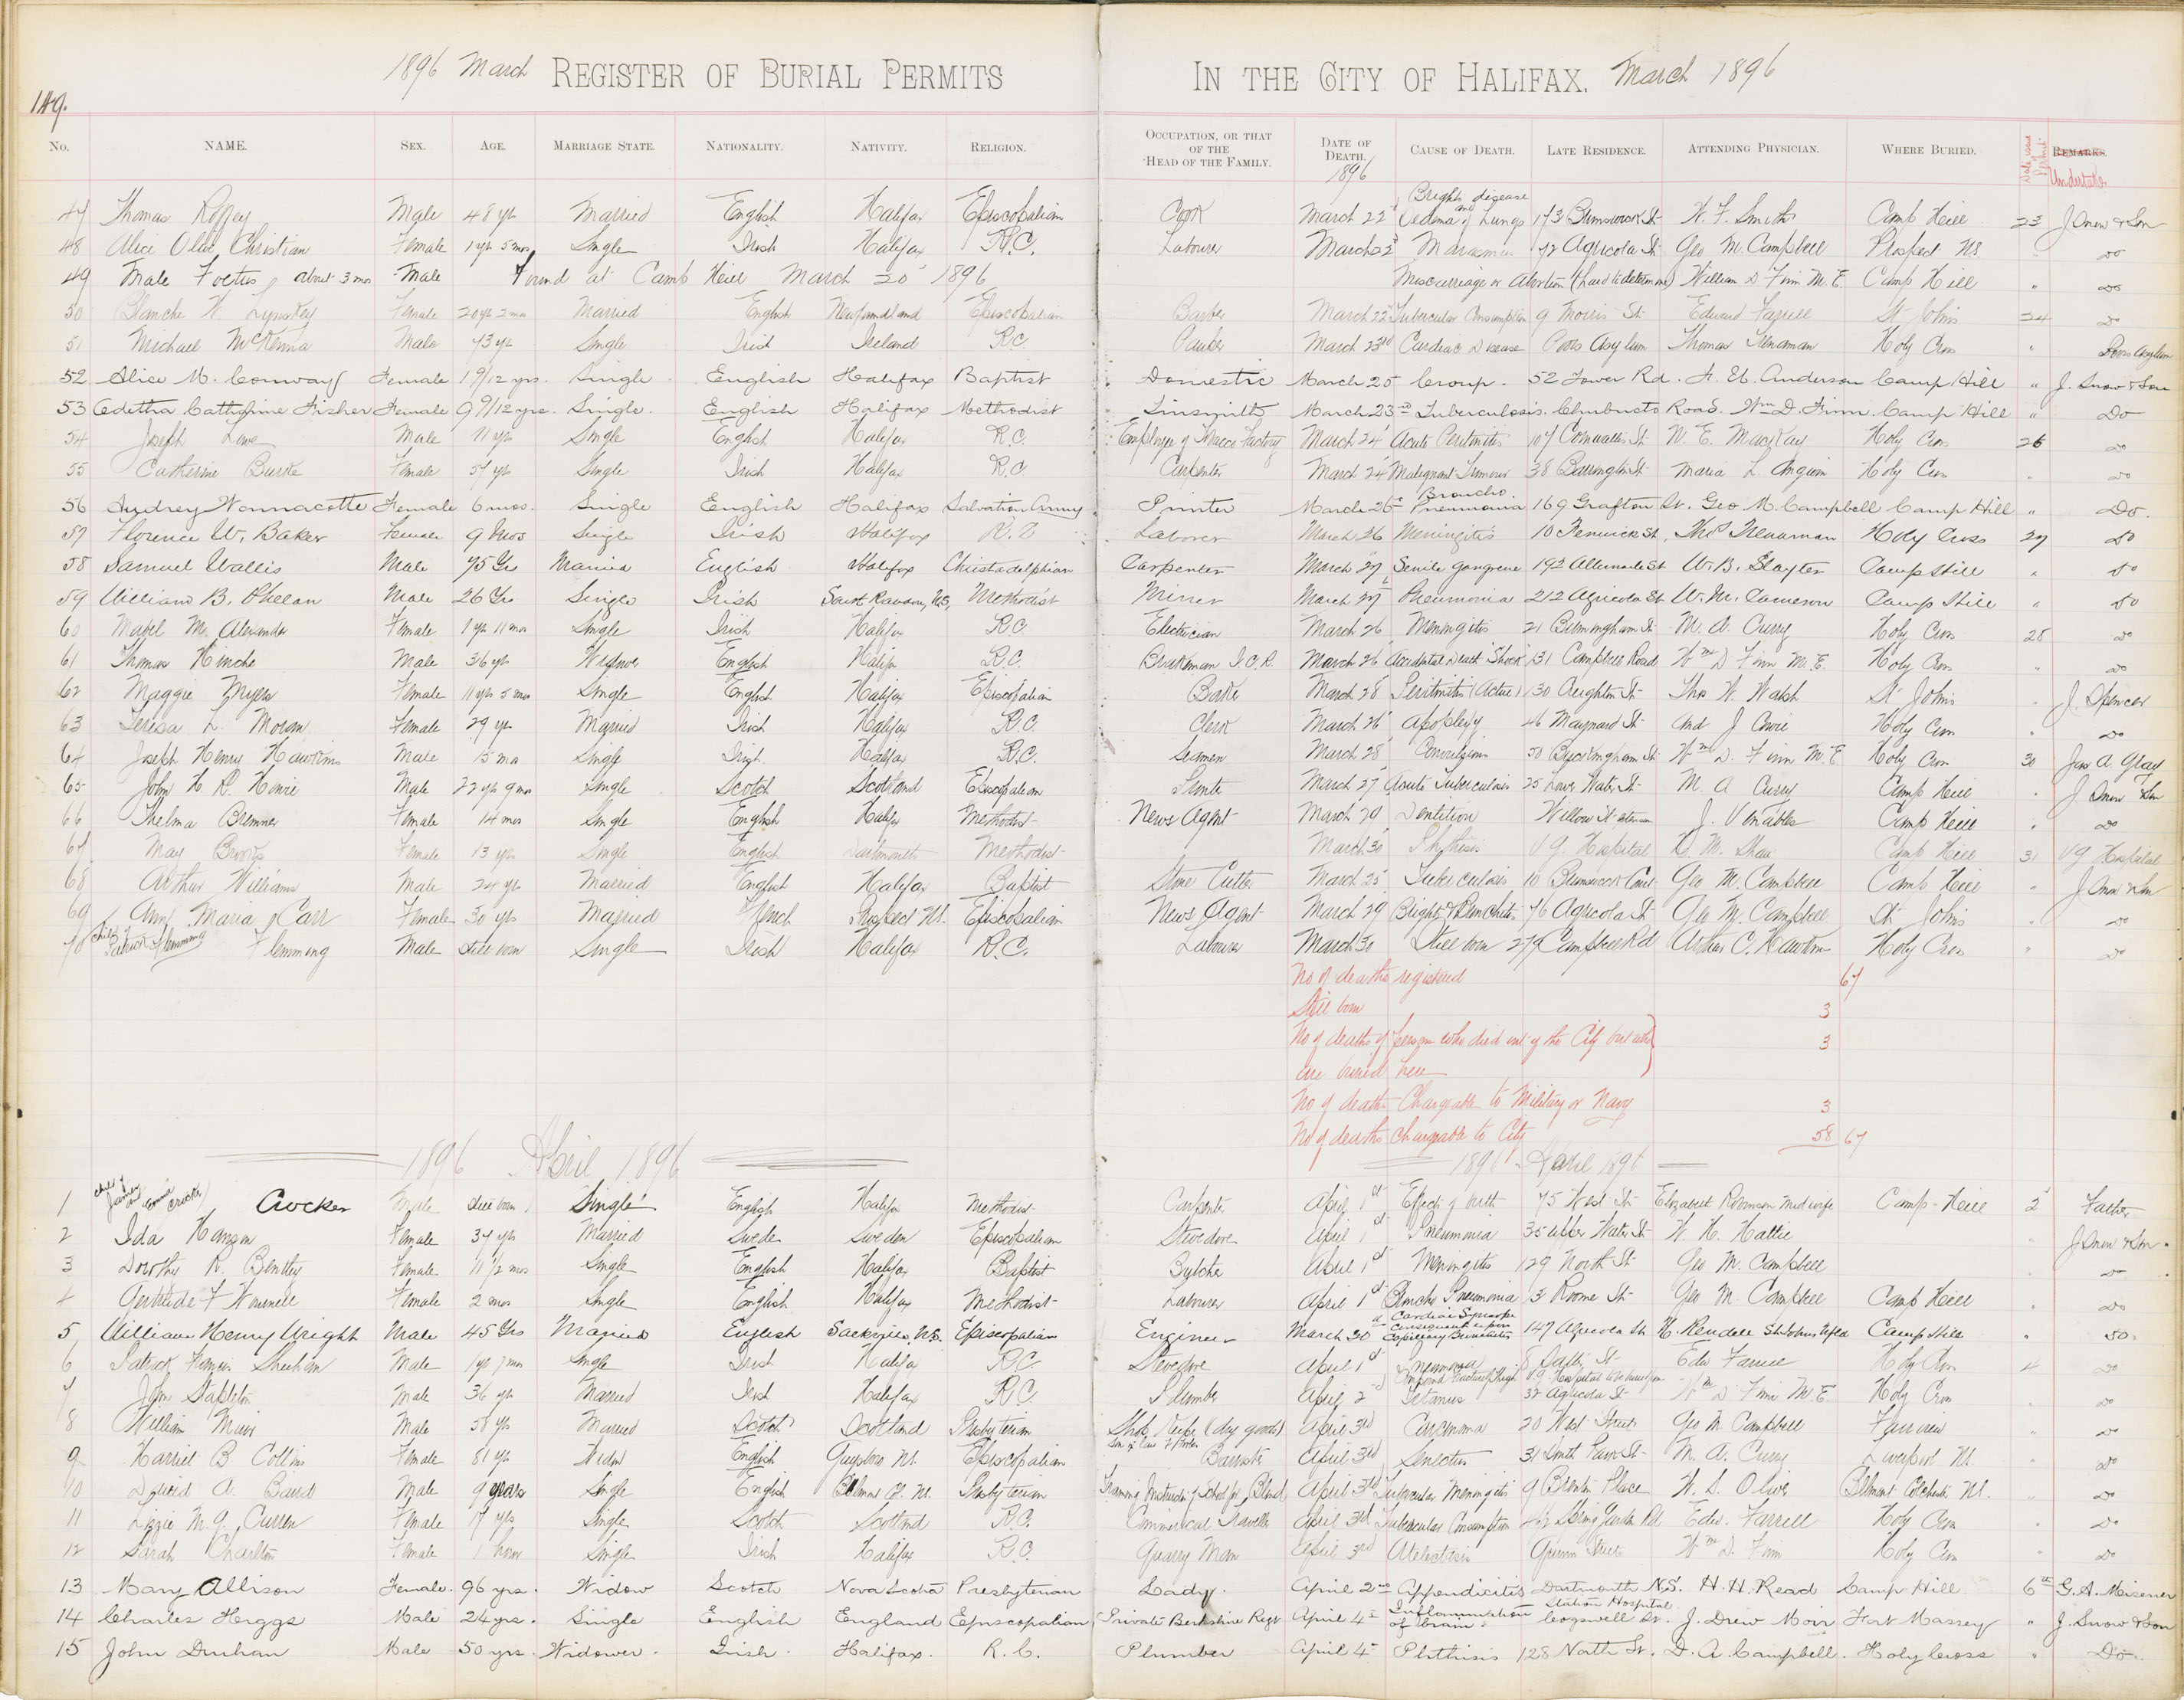 1896 March REGISTER OF BURIAL PERMITS IN THE CITY OF HALIFAX. March 1896
149.
No. NAME. SEX. AGE. MARRIAGE STATE. NATIONALITY. NATIVITY. RELIGION. OCCUPATION, OR THAT OF THE HEAD OF THE FAMILY. DATE OF DEATH. 1896 CAUSE OF DEATH. LATE RESIDENCE. ATTENDING PHYSICIAN. WHERE BURIED. REMARKS. Undertaker
47 Thomas Male 48 yrs Married English Halifax Episcopalian Cook March 22 Brights disease and Oedma of Lungs 173 Brunswick St W. F. Smith Camp Hill 23 J Snow & Son
48 Alice Olive Christian Female 1 yr 5 mos Single Irish Halifax R.C. Labourer March 22 Marasmus 72 Agricola St Geo M. Campbell Prospect NS " do
49 Male Foetus about 3 mos Male Found at Camp Hill March 20 1896 Miscarriage or Abortion (hard to determine) William D Finn M.E. Camp Hill " do
50 Blanche W. Lynskey Female 20 yrs 2 mos Married English Newfoundland Episcopalian Barber March 22 Tubercular Consumption 9 Morris St Edward Farrell St Johns 24 do
51 Michael McKenna Male 73 yrs Single Irish Ireland R.C. Pauper March 23rd Cardiac Disease Poors Asylum Thomas Trenaman Holy Cross " Poors Asylum
52 Alice M. Conway Female 1 9/12 yrs. Single English Halifax Baptist Domestic March 25 Croup. 52 Tower Rd. F. U. Anderson Camp Hill " J. Snow & Son
53 Editha Catherine Fisher Female 9 9/12 yrs. Single. English Halifax Methodist Tinsmith March 23rd Tuberculosis. Chebucto Road. Wm D. Finn. Camp Hill " Do
54 Joseph Lowe Male 11 yrs Single English Halifax R.C. Employee of Tobacco Factory March 24 Acute Peritonitis 107 Cornwallis St N. E. MacKay Holy Cross 26 do
55 Catherine Burke Female 57 yrs Single Irish Halifax R.C. Carpenter March 24 Malignant Tumour 38 Barrington St Maria L. Angwin Holy Cross " do
56 Audrey Wonnacotte Female 6 mos. Single English Halifax Salvation Army Printer March 26 Broncho. Pneumonia 169 Grafton St. Geo M. Campbell Camp Hill " Do.
57 Florence W. Baker Female 9 mos Single Irish Halifax R.C Laborer March 26 Meningitis 10 Fenwick St. Thos Trenaman Holy Cross 27 do
58 Samuel Wallis Male 75 Yrs Married English Halifax Christadelphian Carpenter March 27 Senile gangrene 192 Albemarle St W. B. Slayter Camp Hill " do
59 William B. Phelan Male 26 Yrs Single Irish N.S. Methodist Miner March 27 Pneumonia 212 Agricola St W. M. Cameron Camp Hill " do
60 Mabel M. Alexander Female 1 yr 11 mos Single Irish Halifax R.C. Electrician March 26 Meningitis 21 Birmingham St M. A. Curry Holy Cross 28 do
61 Thomas Hinche Male 36 yrs Widower English Halifax R.C. Brakeman I.C.R. March 26 Accidental Death "Shock" 131 Campbell Road Wm D Finn M.E. Holy Cross " do
62 Maggie Myers Female 11 yrs 5 mos Single English Halifax Episcopalian March 28 Peritonitis (Acute) 130 Creighton St Thos W. Walsh St Johns " J. Spencer
63 Teresa L. Moran Female 29 yrs Married Irish Halifax R.C. Clerk March 26 Apoplexy 46 Maynard St And J Cowie Holy Cross " do
64 Joseph Henry Hawkins Male 15 mos Single Irish Halifax R.C. Seaman March 28 Convulsions 50 Buckingham St Wm D. Finn M.E. Holy Cross 30 Jas A. Gray
65 John H R. Howie Male 22 yrs 9 mos Single Scotch Scotland Episcopalian March 27 Acute Tuberculosis 25 Lower Water St M. A Curry Camp Hill " J Snow & Son
66 Thelma Bremner Female 14 mos Single English Halifax Methodist News Agent March 29 Dentition Willow St J. Venables Camp Hill " do
67 May Brooks Female 13 yrs Single English Dartmouth Methodist March 30 Phthisis V G. Hospital Camp Hill 31 V G Hospital
68 Arthur Williams Male 24 yrs Married English Halifax Baptist Stone Cutter March 25 Tuberculosis 10 Brunswick Court Geo M. Campbell Camp Hill " J Snow & Son
69 Ann Maria Carr Female 30 yrs Married French Prospect NS. Episcopalian News Agent March 29 Brights & Bronchitis 76 Agricola St Geo M. Campbell St Johns " do
70 Child of Patrick Flemming Flemming Male Still born Single Irish Halifax R.C. Labourer March 30 Still born 279 Campbell Rd Arthur C. Hawkins Holy Cross " do
No of deaths registered 67
Still born 3
No of deaths of persons who died out of the City but who are buried here 3
No of deaths Chargeable to Military or Navy 3
No of deaths chargeable to City 58 67
1896 April 1896 1896 April 1896
1 Child of James and Emma Crocker Crocker Male Still born Single English Halifax Methodist Carpenter April 1st Effects of birth 75 West St Elizabeth Robinson Midwife Camp Hill 2 Father
2 Ida Hanson Female 37 yrs Married Swede Sweden Episcopalian Stevedore April 1st Pneumonia 35 Upper Water St W. H. Hattie J Snow & Son.
3 Dorothy R. Bentley Female 11 1/2 mos Single English Halifax Baptist Butcher April 1st Meningitis 129 North St Geo M. Campbell do
4 Gertrude F Female 2 mos Single English Halifax Methodist Labourer April 1st Broncho Pneumonia 13 Roome St Geo M. Campbell Camp Hill " do
5 William Henry Wright Male 45 Yrs Married English Sackville N.S. Episcopalian Engineer March 30 Cardiac Syncope Consequent upon Capillary Bronchitis 147 Agricola St H. Rendell St Johns Nfld Camp Hill " do.
6 Patrick Francis Sheehan Male 1 yr 7 mos Single Irish Halifax R.C. Stevedore April 1st Pneumonia St Edw Farrell Holy Cross 4 do
7 John Stapleton Male 36 yrs Married Irish Halifax R.C. Plumber April 2 Compound Fracture Thigh Tetanus V.G Hospital 32 Agricola St Wm D Finn M.E. Holy Cross " do
8 William Muir Male 58 yrs Married Scotch Scotland Presbyterian Shop Keeper (dry goods) April 3rd Carcinoma 20 West Street Geo M Campbell Fairview " do
9 Harriet B. Collins Female 81 yrs Widow English Guysboro NS. Episcopalian Barrister April 3rd 31 South Park St M. A. Curry Liverpool NS. " do
10 David A. Baird Male 9 years Single English NS. Presbyterian April 3rd Tubercular Meningitis 9 Place W. S. Oliver Colchester NS. " do
11 Lizzie M. G. Curren Female 17 yrs Single Scotch Scotland R.C. Commercial Traveller April 3rd Tubercular Consumption Spring Garden Rd Edw. Farrell Holy Cross " do
12 Sarah Charlton Female 1 hour Single Irish Halifax R.C. Quarry Man April 3rd Atelectasis Street Wm D. Finn Holy Cross " do
13 Mary Allison Female. 96 yrs. Widow Scotch Nova Scotia Presbyterian Lady. April 2nd Appendicitis Dartmouth N.S. H. H. Read Camp Hill 6th G. A. Misener
14 Charles Higgs Male 24 yrs. Single English England Episcopalian Private Berkshire Regt April 4th Inflammation of brain. Station Hospital Cogswell St. J. Drew Moir Fort Massey " J. Snow & Son
15 John Dunham Male 50 yrs. Widower. Irish. Halifax. R. C. Plumber April 4th Phthisis 128 North St. D. A. Campbell. Holy Cross " Do.